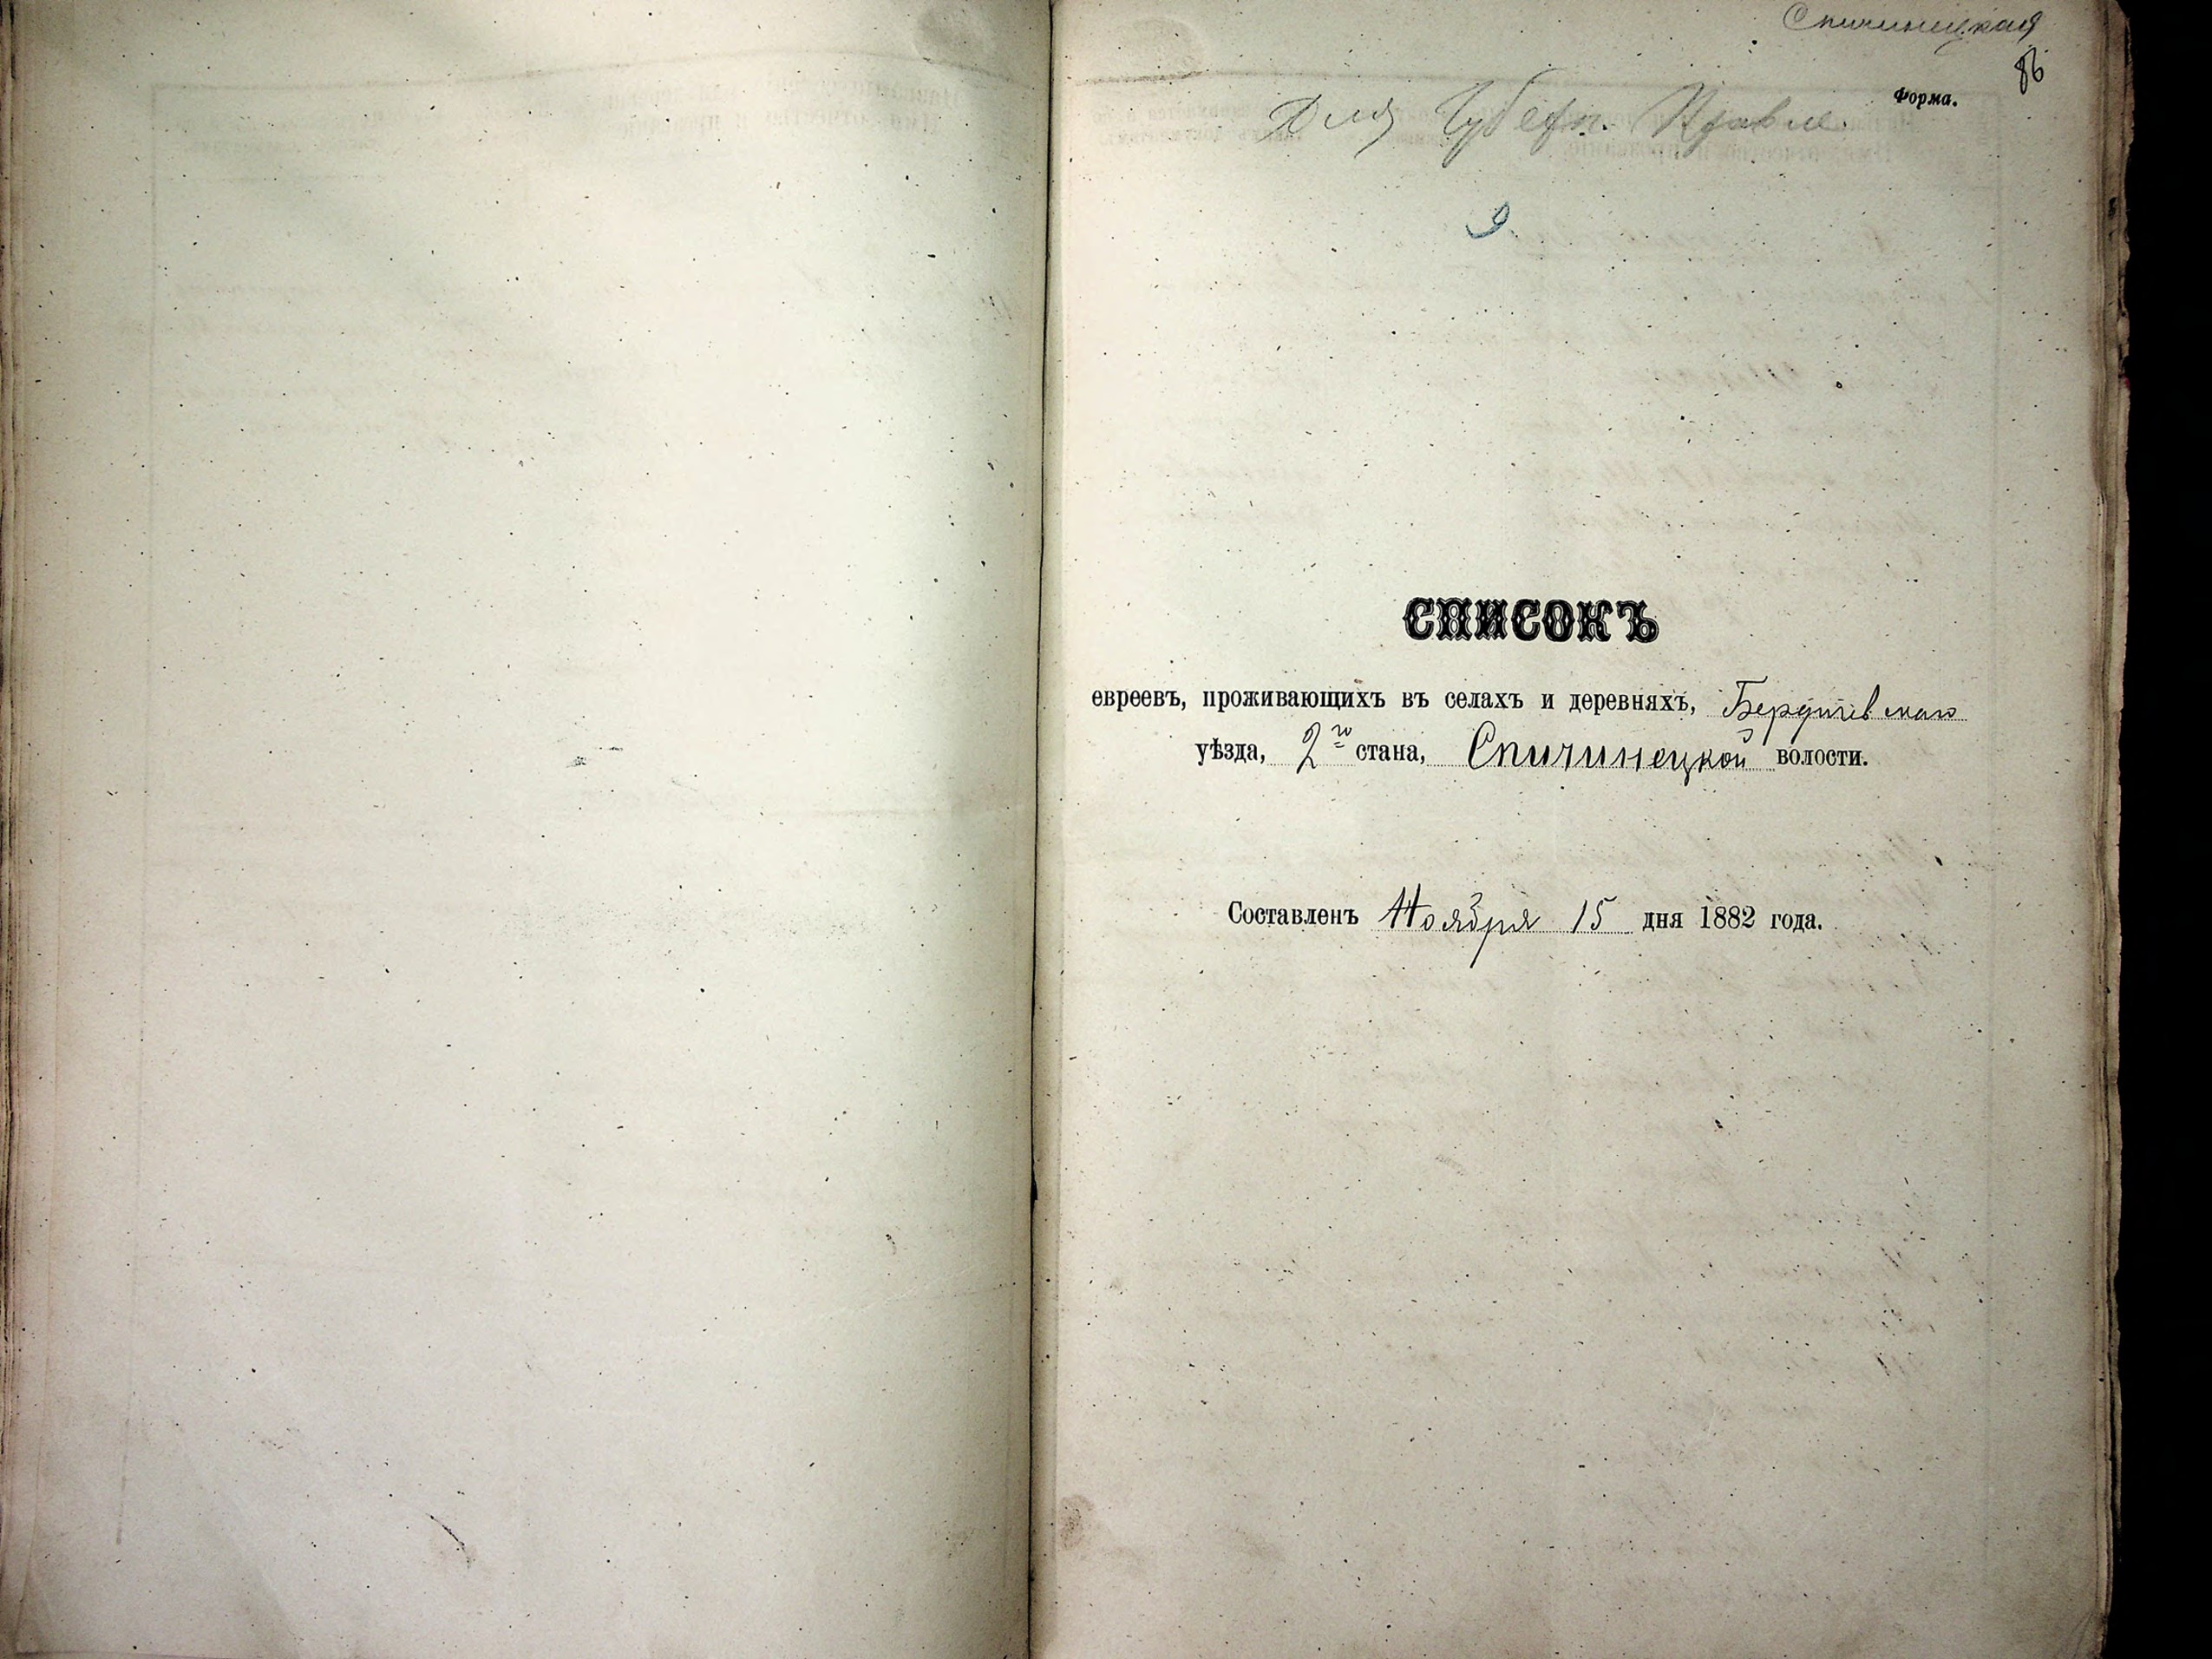 Спичинецкая
86
Форма.
Для Губерн. Правле.
9.
СПИСОКЪ
евреевъ, проживающихъ въ селахъ и деревняхъ, Бердичевскаго
уѣзда, 2го стана, Спичинецкой волости.
Составленъ Ноября 15 дня 1882 года.